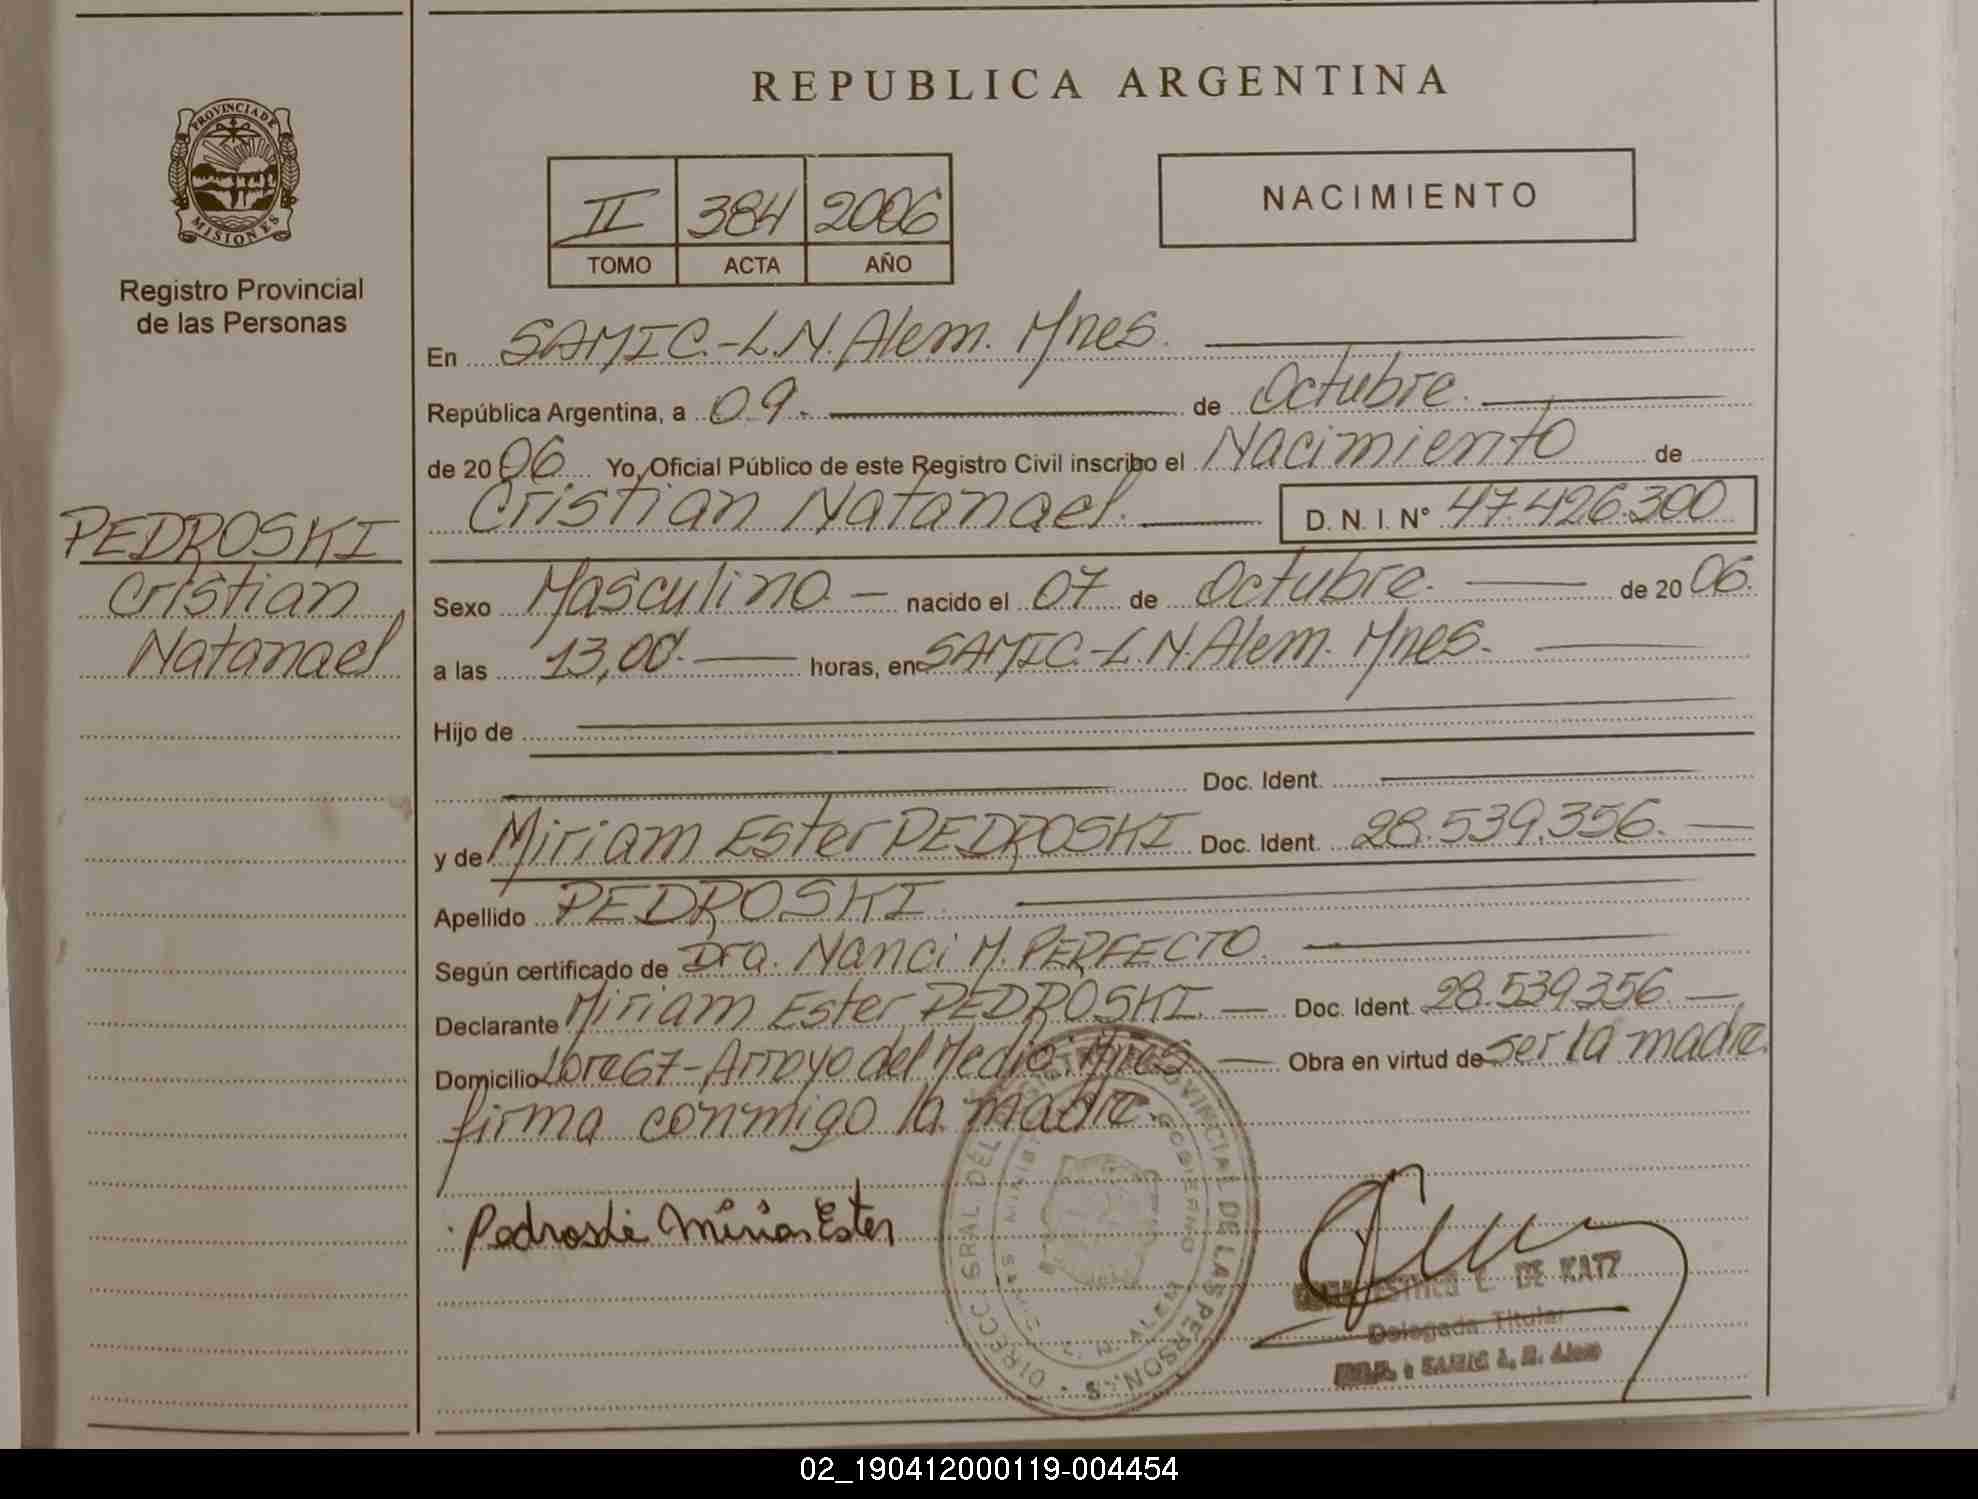 REPUBLICA ARGENTINA
PROVINCIA DE
MISIONES
Registro Provincial
de las Personas
II 384 2006
TOMO ACTA AÑO
NACIMIENTO
En SAMIC.-L.N.Alem. Mnes.
República Argentina, a 09. de Octubre.
de 2006 Yo, Oficial Público de este Registro Civil inscribo el Nacimiento de
Cristian Natanael. D. N. I. N° 47.426.300
PEDROSKI
Cristian
Natanael
Sexo Masculino nacido el 07 de Octubre. de 2006.
a las 13,00. horas, en SAMIC.-L.N.Alem. Mnes.
Hijo de
Doc. Ident.
y de Miriam Ester PEDROSKI Doc. Ident. 28.539.356.
Apellido PEDROSKI.
Según certificado de Dra. Nanci M. PERFECTO.
Declarante Miriam Ester PEDROSKI. Doc. Ident. 28.539.356.
Domicilio Lote 67-Arroyo del Medio. Mnes Obra en virtud de ser la madre.
firma conmigo la madre.
Pedroski Miriam Ester
DIRECC. GRAL DEL REGISTRO PROVINCIAL DE LAS PERSONAS
GOBIERNO
ALEM
E. DE KATZ
Delegada Titular
02_190412000119-004454